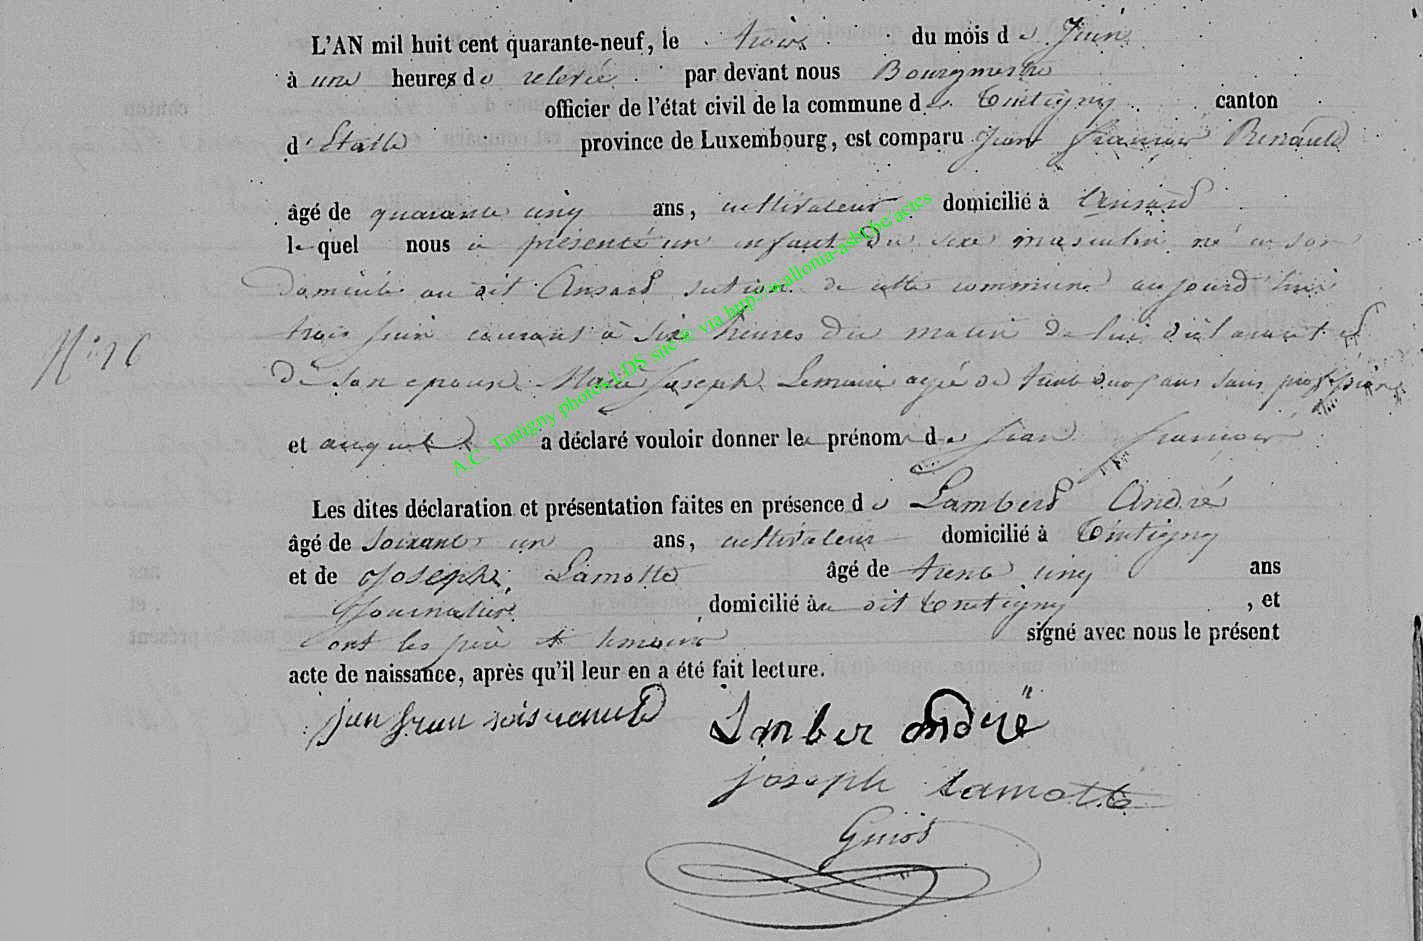 L'AN mil huit cent quarante-neuf, le trois du mois de Juin
à une heures de relevée par devant nous Bourgmestre
officier de l'état civil de la commune de Tintigny canton
d'Etalle province de Luxembourg, est comparu Jean François Renauld
âgé de quarante cinq ans, cultivateur domicilié à Ansard
lequel nous a présenté un enfant du sexe masculin né a son
domicile au dit Ansard section de cette commune aujourd'hui
trois juin courant à six heures du matin de lui déclarant et
N° 26
De son epouse Marie Joseph Lemaire agée de trente ans sans profession
et auquel a déclaré vouloir donner le prénom de Jean François
Les dites déclaration et présentation faites en présence de Lambert André
âgé de soixante un ans, cultivateur domicilié à Tintigny
et de Joseph Lamotte âgé de trente cinq ans
Journalier domicilié au dit Tintigny, et
ont les père et temoins signé avec nous le présent
acte de naissance, après qu'il leur en a été fait lecture.
jean fran sois renauld Lamber andré
joseph Lamotte
Guiot
A.C. Tintigny photos LDS site © via http://wallonia-asbl.be/actes